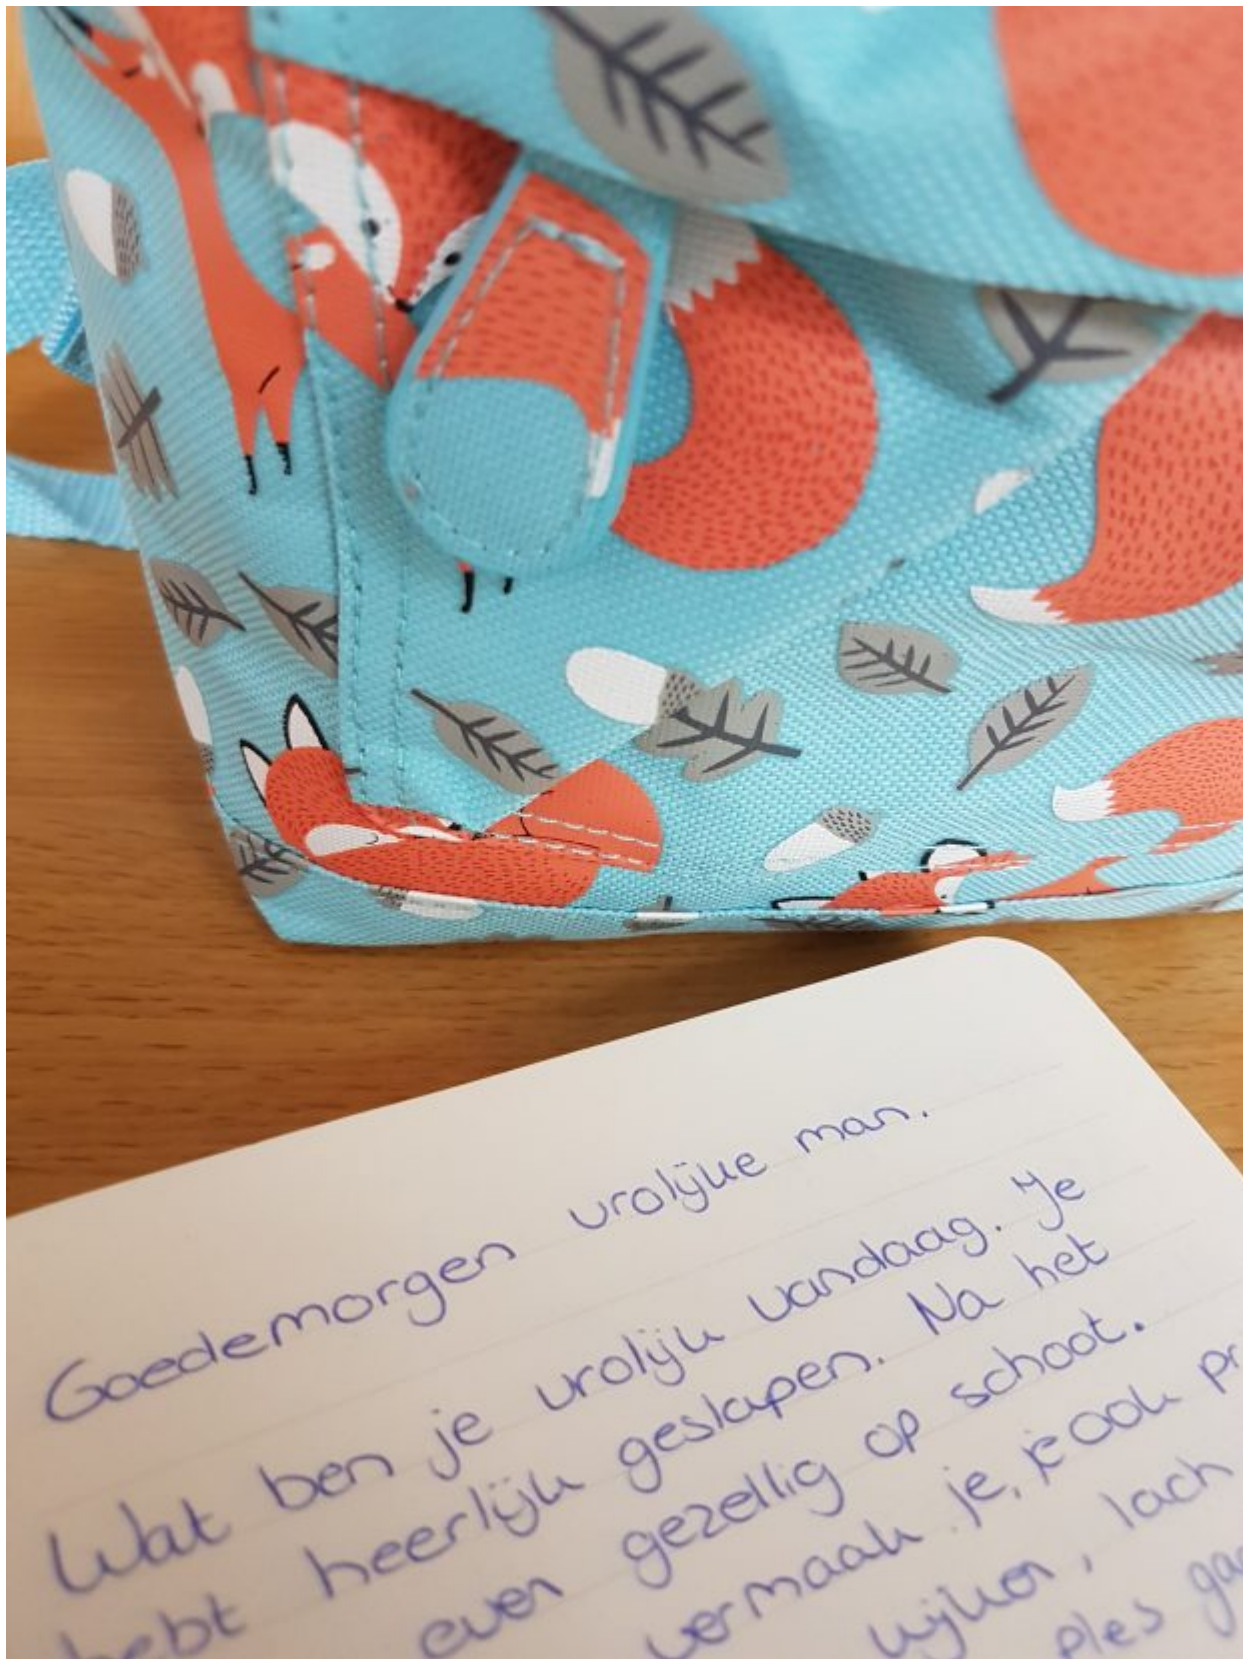 Goedemorgen vrolijke man.
Wat ben je vrolijk vandaag. Je
hebt heerlijk geslapen. Na het
even gezellig op schoot.
vermaak je, je ook
kijken, lach